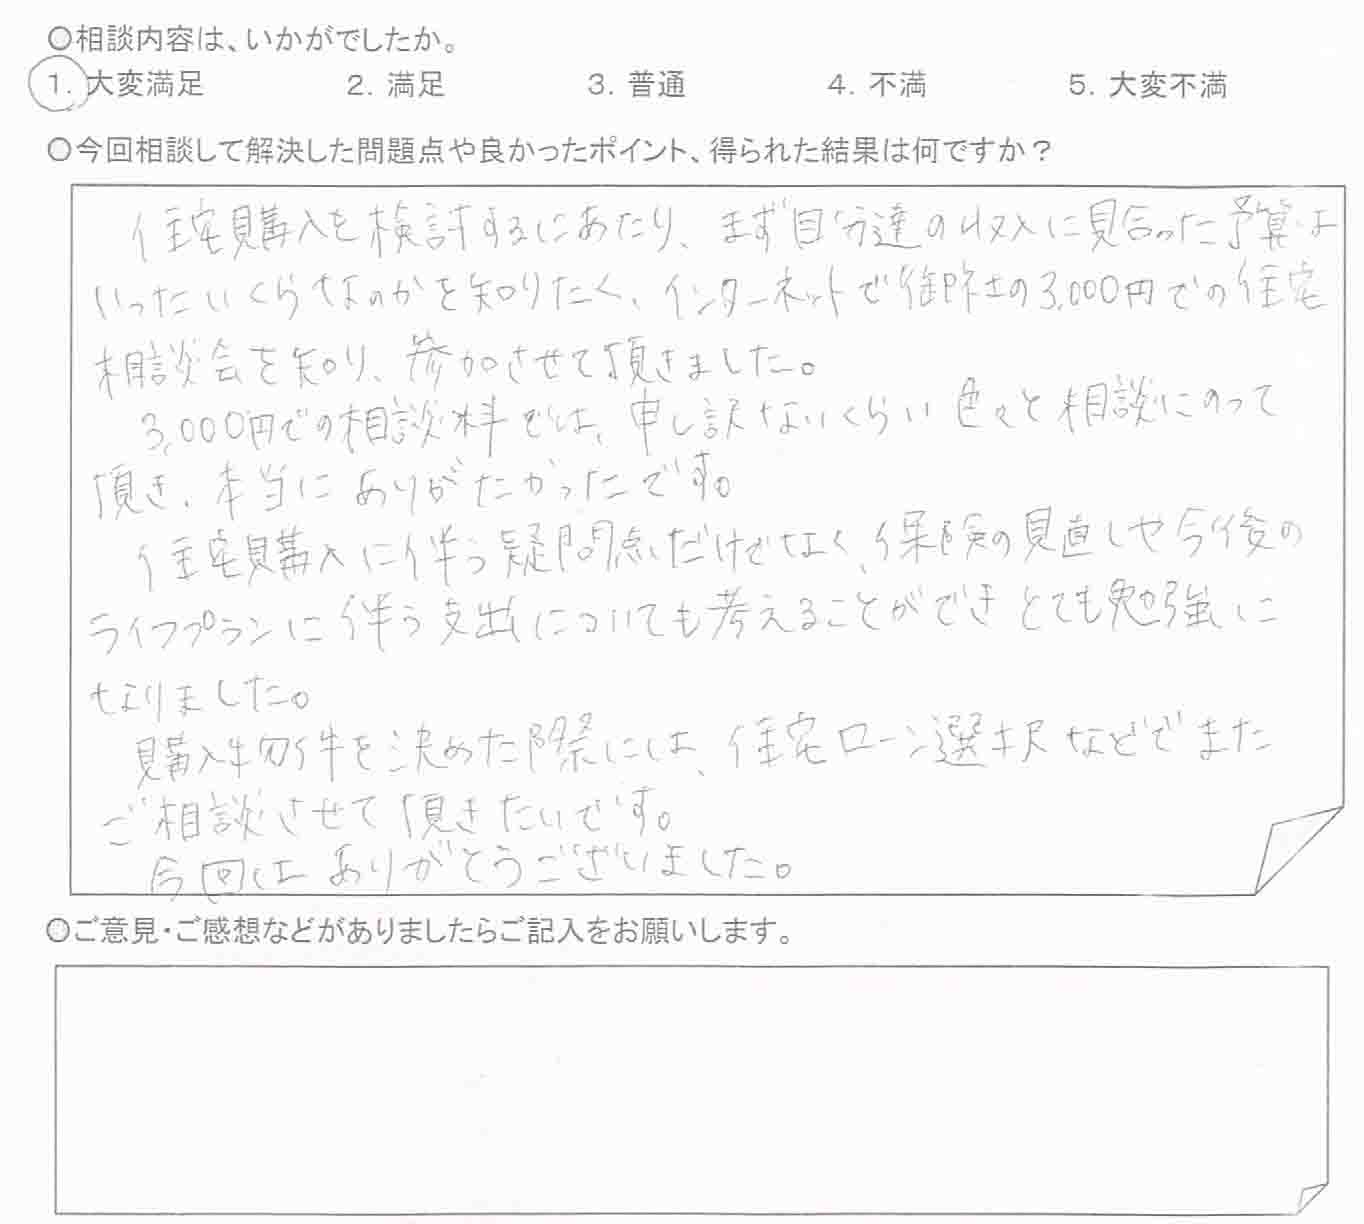 ○相談内容は、いかがでしたか。
1. 大変満足 2. 満足 3. 普通 4. 不満 5. 大変不満
○今回相談して解決した問題点や良かったポイント、得られた結果は何ですか？
住宅購入を検討するにあたり、まず自分達の収入に見合った予算は
いったいくらなのかを知りたく、インターネットで御社の3,000円での住宅
相談会を知り、参加させて頂きました。
3,000円での相談料では、申し訳ないくらい色々と相談にのって
頂き、本当にありがたかったです。
住宅購入に伴う疑問点だけでなく、保険の見直しや今後の
ライフプランに伴う支出についても考えることができとても勉強に
なりました。
購入物件を決めた際には、住宅ローン選択などでまた
ご相談させて頂きたいです。
今回はありがとうございました。
○ご意見・ご感想などがありましたらご記入をお願いします。